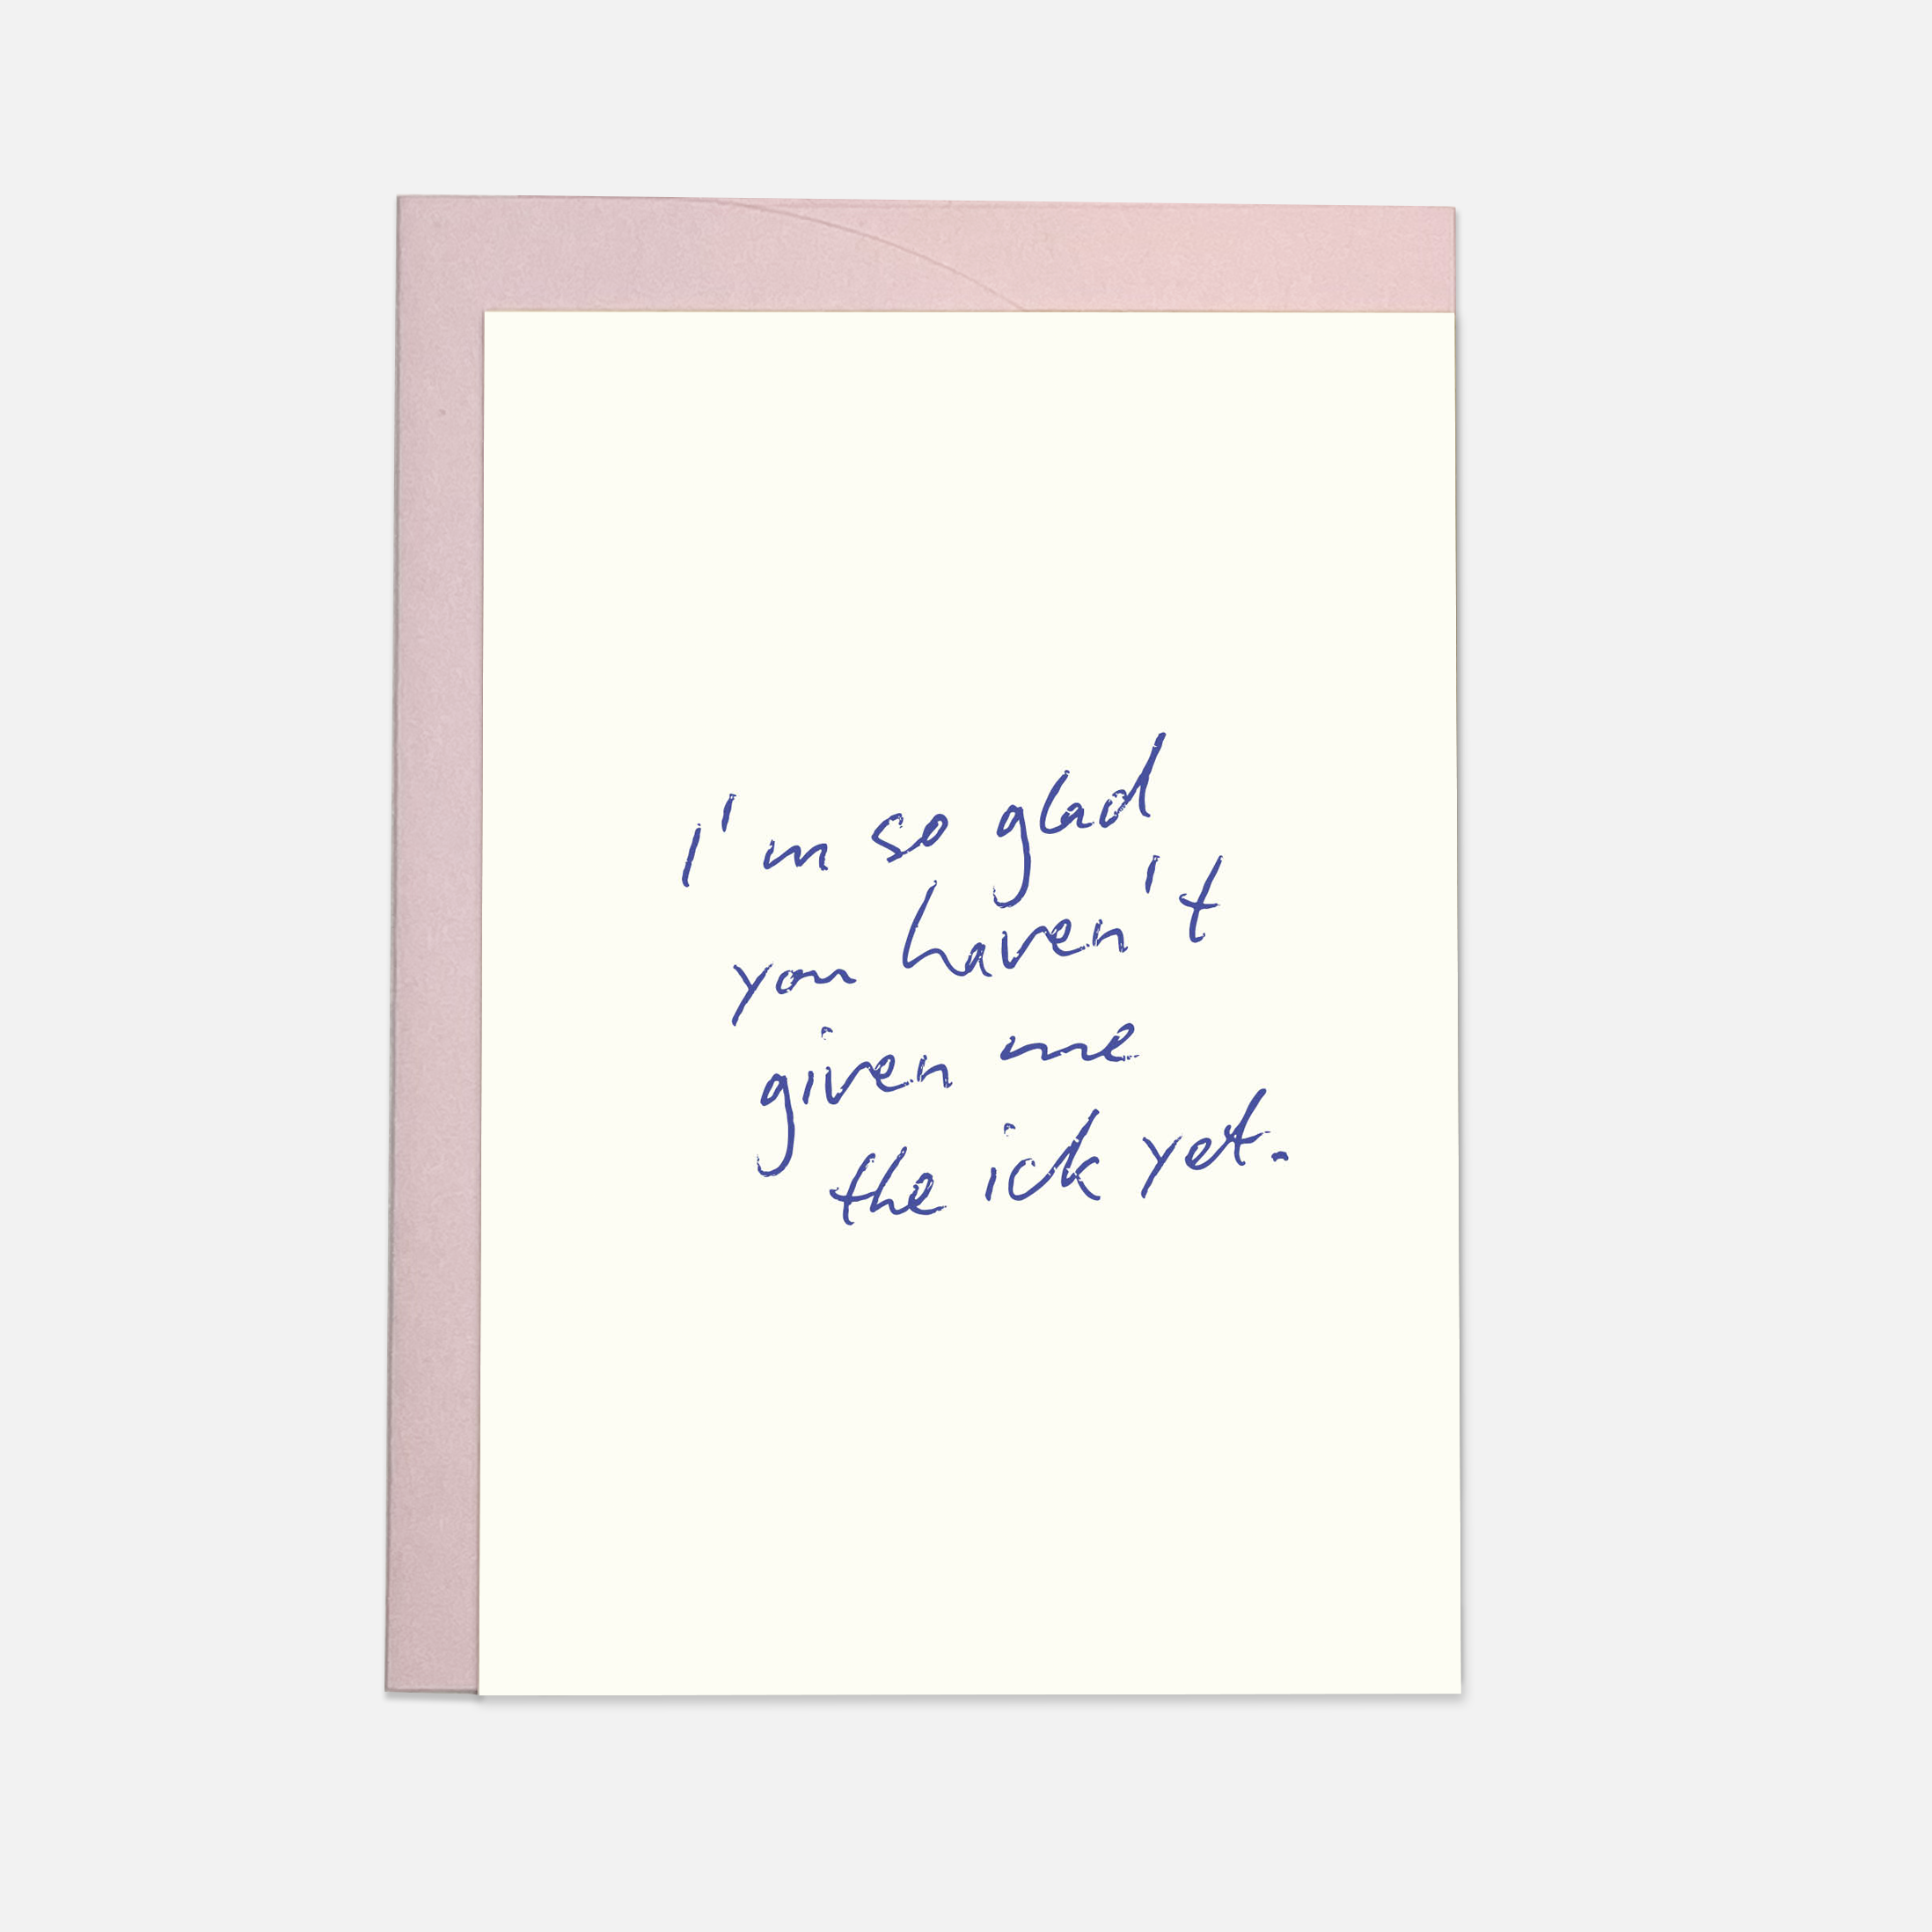 I'm so glad
you haven't
given me
the ick yet.